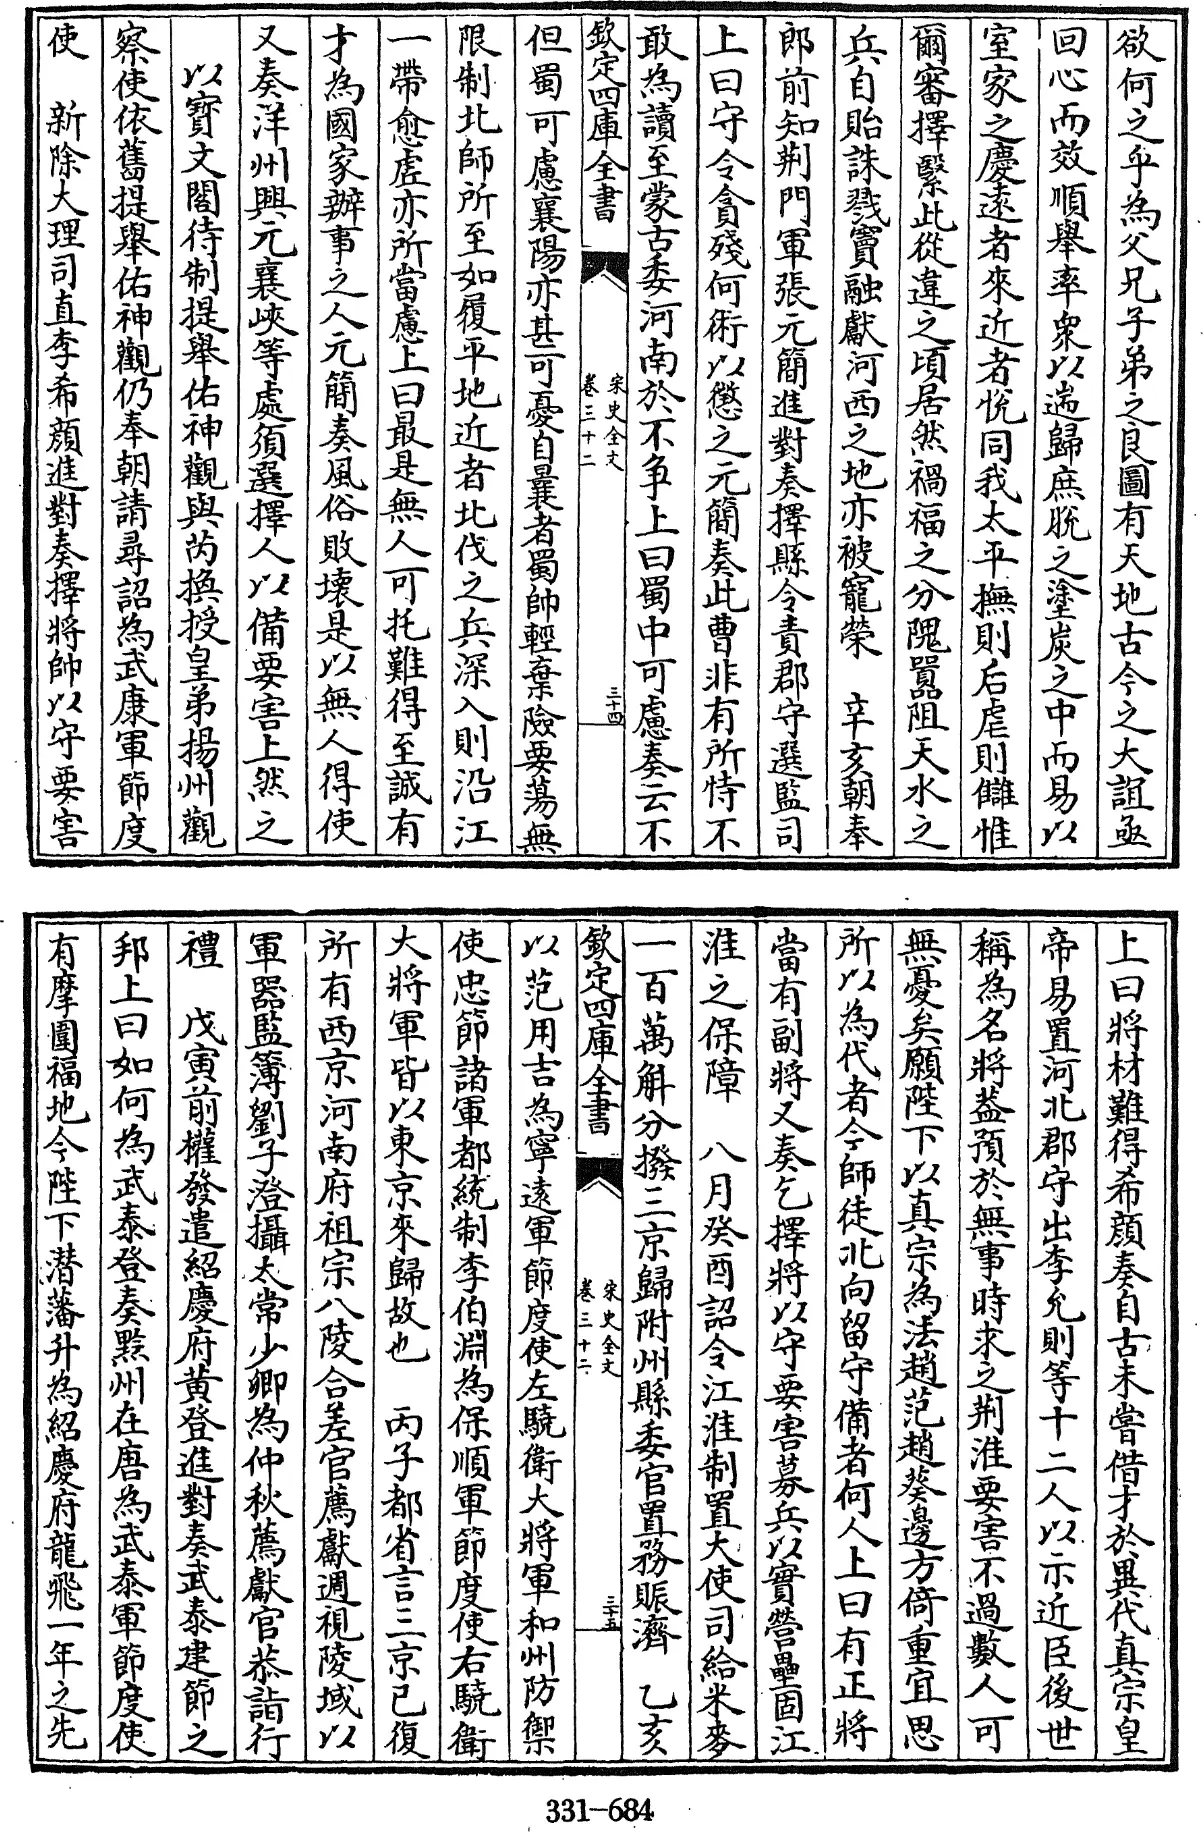 欲何之乎為父兄子弟之良圖有天地古今之大誼亟
回心而效順舉率衆以遄歸庶脫之塗炭之中而易以
室家之慶遠者來近者悅同我太平撫則后虐則讎惟
爾審擇繄此從違之頃居然禍福之分隗囂阻天水之
兵自貽誅戮竇融獻河西之地亦被寵榮　辛亥朝奉
郎前知荆門軍張元簡進對奏擇縣令責郡守選監司
上曰守令貪殘何術以懲之元簡奏此曹非有所恃不
敢為讀至蒙古委河南於不争上曰蜀中可慮奏云不
欽定四庫全書
宋史全文
卷三十二
三十四
但蜀可慮襄陽亦甚可憂自曩者蜀帥輕棄險要蕩無
限制北師所至如履平地近者北伐之兵深入則沿江
一帶愈虛亦所當慮上曰最是無人可托難得至誠有
才為國家辦事之人元簡奏風俗敗壞是以無人得使
又奏洋州興元襄峽等處須選擇人以備要害上然之
以寶文閣待制提舉佑神觀與芮換授皇弟揚州觀
察使依舊提舉佑神觀仍奉朝請尋詔為武康軍節度
使　新除大理司直李希顔進對奏擇將帥以守要害
上曰將材難得希顔奏自古未嘗借才於異代真宗皇
帝易置河北郡守出李允則等十二人以示近臣後世
稱為名將葢預於無事時求之荆淮要害不過數人可
無憂矣願陛下以真宗為法趙范趙葵邊方倚重宜思
所以為代者今師徒北向留守備者何人上曰有正將
當有副將又奏乞擇將以守要害募兵以實營壘固江
淮之保障　八月癸酉詔令江淮制置大使司給米麥
一百萬斛分撥三京歸附州縣委官置務賑濟　乙亥
欽定四庫全書
宋史全文
卷三十二
三十五
以范用吉為寧遠軍節度使左驍衛大將軍和州防禦
使忠節諸軍都統制李伯淵為保順軍節度使右驍衛
大將軍皆以東京來歸故也　丙子都省言三京已復
所有西京河南府祖宗八陵合差官薦獻週視陵域以
軍器監簿劉子澄攝太常少卿為仲秋薦獻官恭詣行
禮　戊寅前權發遣紹慶府黄登進對奏武泰建節之
邦上曰如何為武泰登奏黔州在唐為武泰軍節度使
有摩圍福地今陛下潜藩升為紹慶府龍飛一年之先
331-684